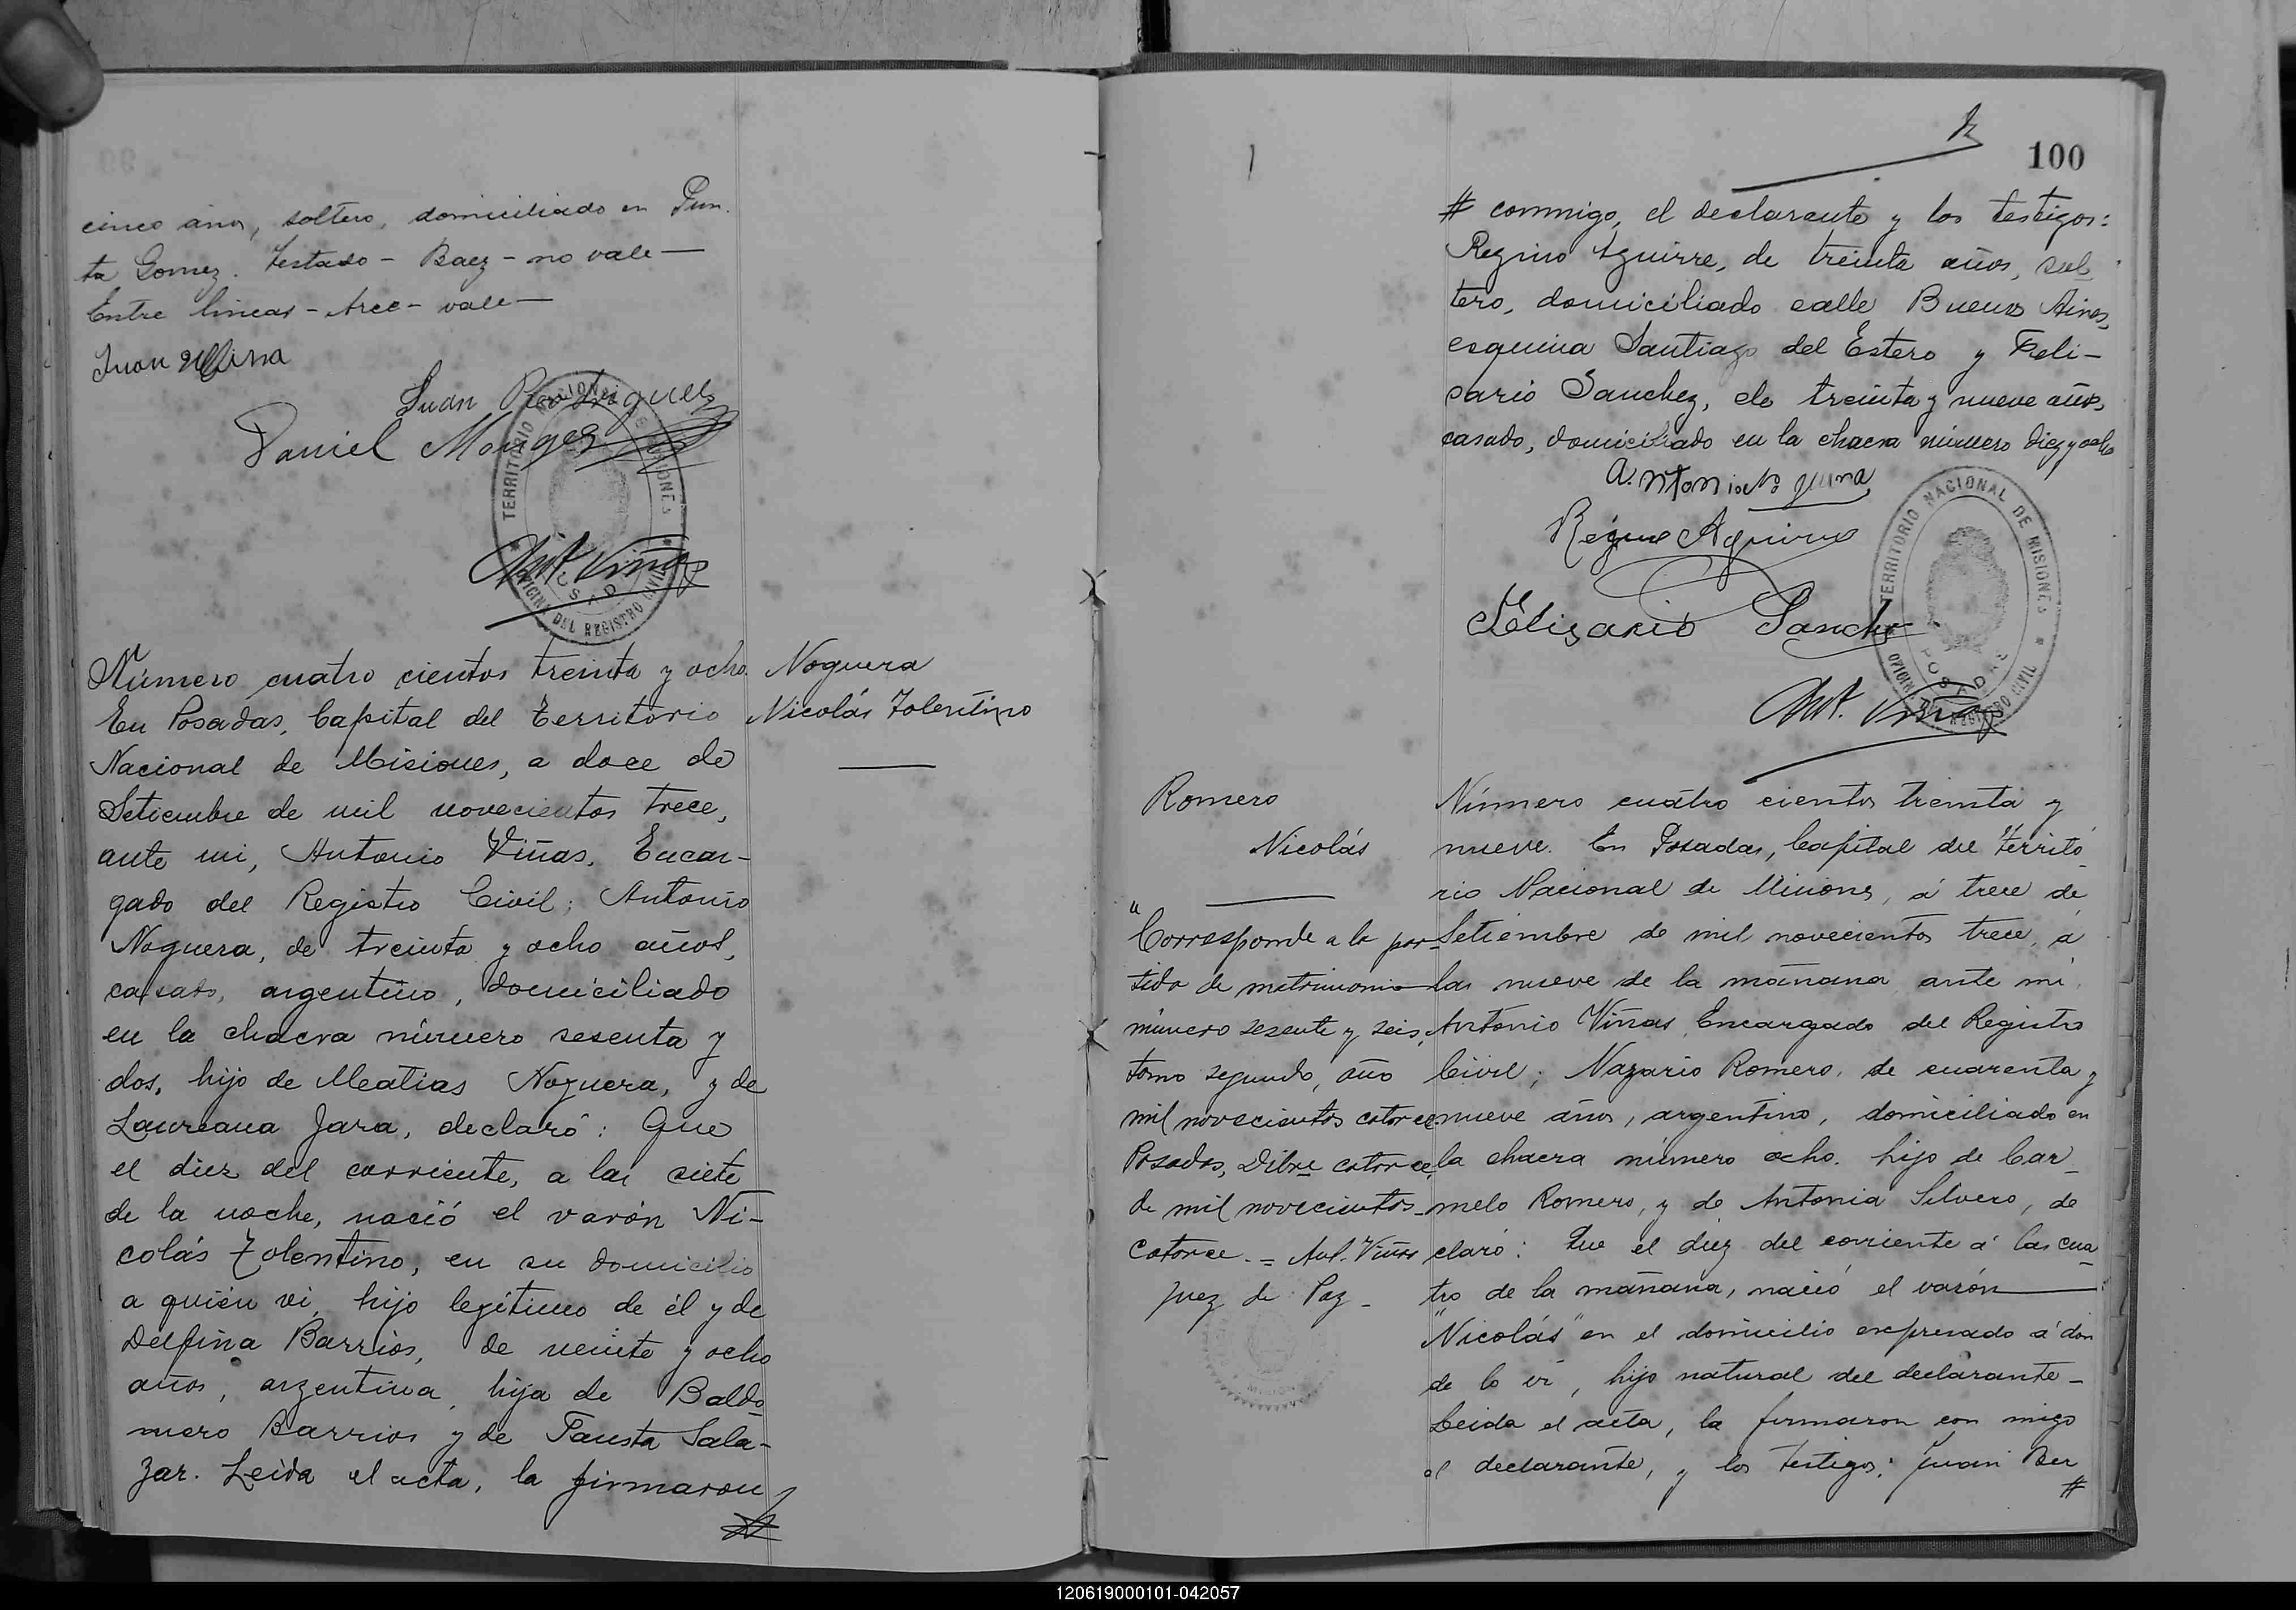 cinco años, soltero, domiciliado en Pun-
ta Gomez. Testado - Baez - no vale -
Entre lineas - Arce - vale -
Juan
Juan Rodriguez
Daniel Monges
TERRITORIO NACIONAL DE MISIONES
OFICINA DEL REGISTRO CIVIL
POSADAS
Ant. Viñas
Número cuatro cientos treinta y ocho.
En Posadas, Capital del Territorio
Nacional de Misiones, a doce de
Setiembre de mil novecientos trece,
ante mi, Antonio Viñas, Encar-
gado del Registro Civil; Antonio
Noguera, de treinta y ocho años,
casado, argentino, domiciliado
en la chacra número sesenta y
dos, hijo de Matias Noguera, y de
Laureana Jara, declaró: Que
el diez del corriente, a las siete
de la noche, nació el varón Ni-
colás Tolentino, en su domicilio
a quién vi, hijo legítimo de él y de
Delfina Barrios, de veinte y ocho
años, argentina, hija de Baldo-
mero Barrios y de Fausta Sala-
zar. Leida el acta, la firmaron
#
Noguera
Nicolás Tolentino
100
# conmigo, el declarante y los testigos:
Regino Aguirre, de treinta años, sol-
tero, domiciliado calle Buenos Aires,
esquina Santiago del Estero y Feli-
sario Sanchez, de treinta y nueve años,
casado, domiciliado en la chacra número diez y ocho
Antonio Noguera
Regino Aguirre
Felisario Sanchez
TERRITORIO NACIONAL DE MISIONES
OFICINA DEL REGISTRO CIVIL
POSADAS
Ant. Viñas
Romero
Nicolás
"Corresponde a la par-
tida de matrimonio
número sesenta y seis,
tomo segundo, año
mil novecientos catorce.
Posadas, Dibre catorce
de mil novecientos
catorce. = Ant. Viñas
Juez de Paz -
Número cuatro cientos treinta y
nueve. En Posadas, Capital del Territo-
rio Nacional de Misiones, á trece de
Setiembre de mil novecientos trece, á
las nueve de la mañana ante mi,
Antonio Viñas, Encargado del Registro
Civil; Nazario Romero, de cuarenta y
nueve años, argentino, domiciliado en
la chacra número ocho, hijo de Car-
melo Romero, y de Antonia Silvero, de
claró: Que el diez del corriente á las cua-
tro de la mañana, nació el varón
"Nicolás" en el domicilio expresado á don
de lo vi, hijo natural del declarante -
Leida el acta, la firmaron con migo
el declarante, y los testigos: Juan Ber
#
120619000101-042057